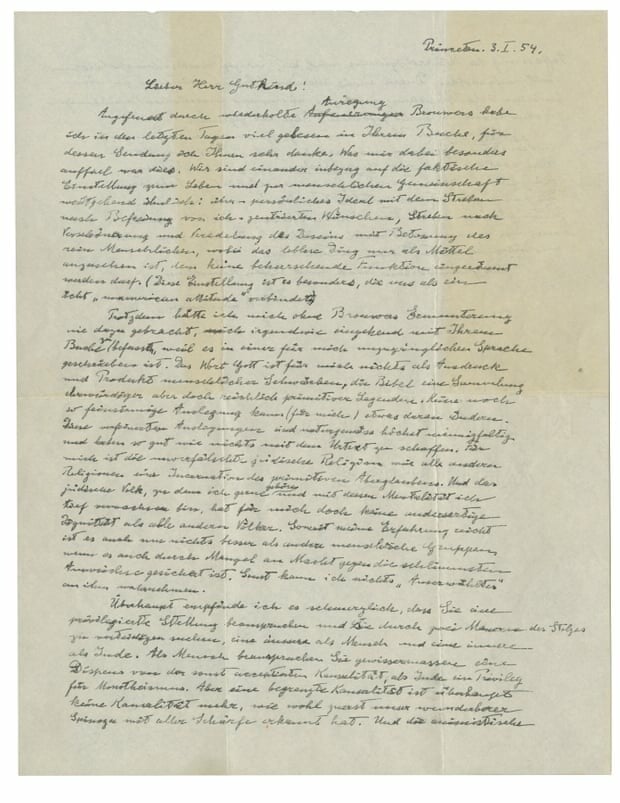 Princeton. 3. I. 54.
Lieber Herr Gutkind!
Angefeuert durch wiederholte Anregung Brouwers habe
ich in den letzten Tagen viel gelesen in Ihrem Buche, für
dessen Sendung ich Ihnen sehr danke. Was mir dabei besonders
auffiel war dies. Wir sind einander inbezug auf die faktische
Einstellung zum Leben und zur menschlichen Gemeinschaft
weitgehend ähnlich: über-persönliches Ideal mit dem Streben
nach Befreiung von ich-zentrierten Wünschen, Streben nach
Verschönerung und Veredelung des Daseins mit Betonung des
rein Menschlichen, wobei das leblose Ding nur als Mittel
anzusehen ist, dem keine beherrschende Funktion eingeräumt
werden darf. (Diese Einstellung ist es besonders, die uns als ein
echt „unamerican attitude" verbindet)
Trotzdem hätte ich mich ohne Brouwers Ermunterung
nie dazu gebracht, mich irgendwie eingehend mit Ihrem
Buche zu befassen, weil es in einer für mich unzugänglichen Sprache
geschrieben ist. Das Wort Gott ist für mich nichts als Ausdruck
und Produkt menschlicher Schwächen, die Bibel eine Sammlung
ehrwürdiger aber doch reichlich primitiver Legenden. Keine noch
so feinsinnige Auslegung kann (für mich) etwas daran ändern.
Diese verfeinerten Auslegungen sind naturgemäss höchst mannigfaltig
und haben so gut wie nichts mit dem Urtext zu schaffen. Für
mich ist die unverfälschte jüdische Religion wie alle anderen
Religionen eine Incarnation des primitiven Aberglaubens. Und das
jüdische Volk, zu dem ich gerne gehöre und mit dessen Mentalität ich
tief verwachsen bin, hat für mich doch keine andersartige
Dignität als alle anderen Völker. Soweit meine Erfahrung reicht
ist es auch um nichts besser als andere menschliche Gruppen
wenn es auch durch Mangel an Macht gegen die schlimmsten
Auswüchse gesichert ist. Sonst kann ich nichts „Auserwähltes"
an ihm wahrnehmen.
Überhaupt empfinde ich es schmerzlich, dass Sie eine
privilegierte Stellung beanspruchen und sie durch zwei Mauern des Stolzes
zu verteidigen suchen, eine äussere als Mensch und eine innere
als Jude. Als Mensch beanspruchen Sie gewissermassen eine
Dispens von der sonst acceptierten Kausalität, als Jude ein Privileg
für Monotheismus. Aber eine begrenzte Kausalität ist überhaupt
keine Kausalität mehr, wie wohl zuerst unser wunderbarer
Spinoza mit aller Schärfe erkannt hat. Und die animistische